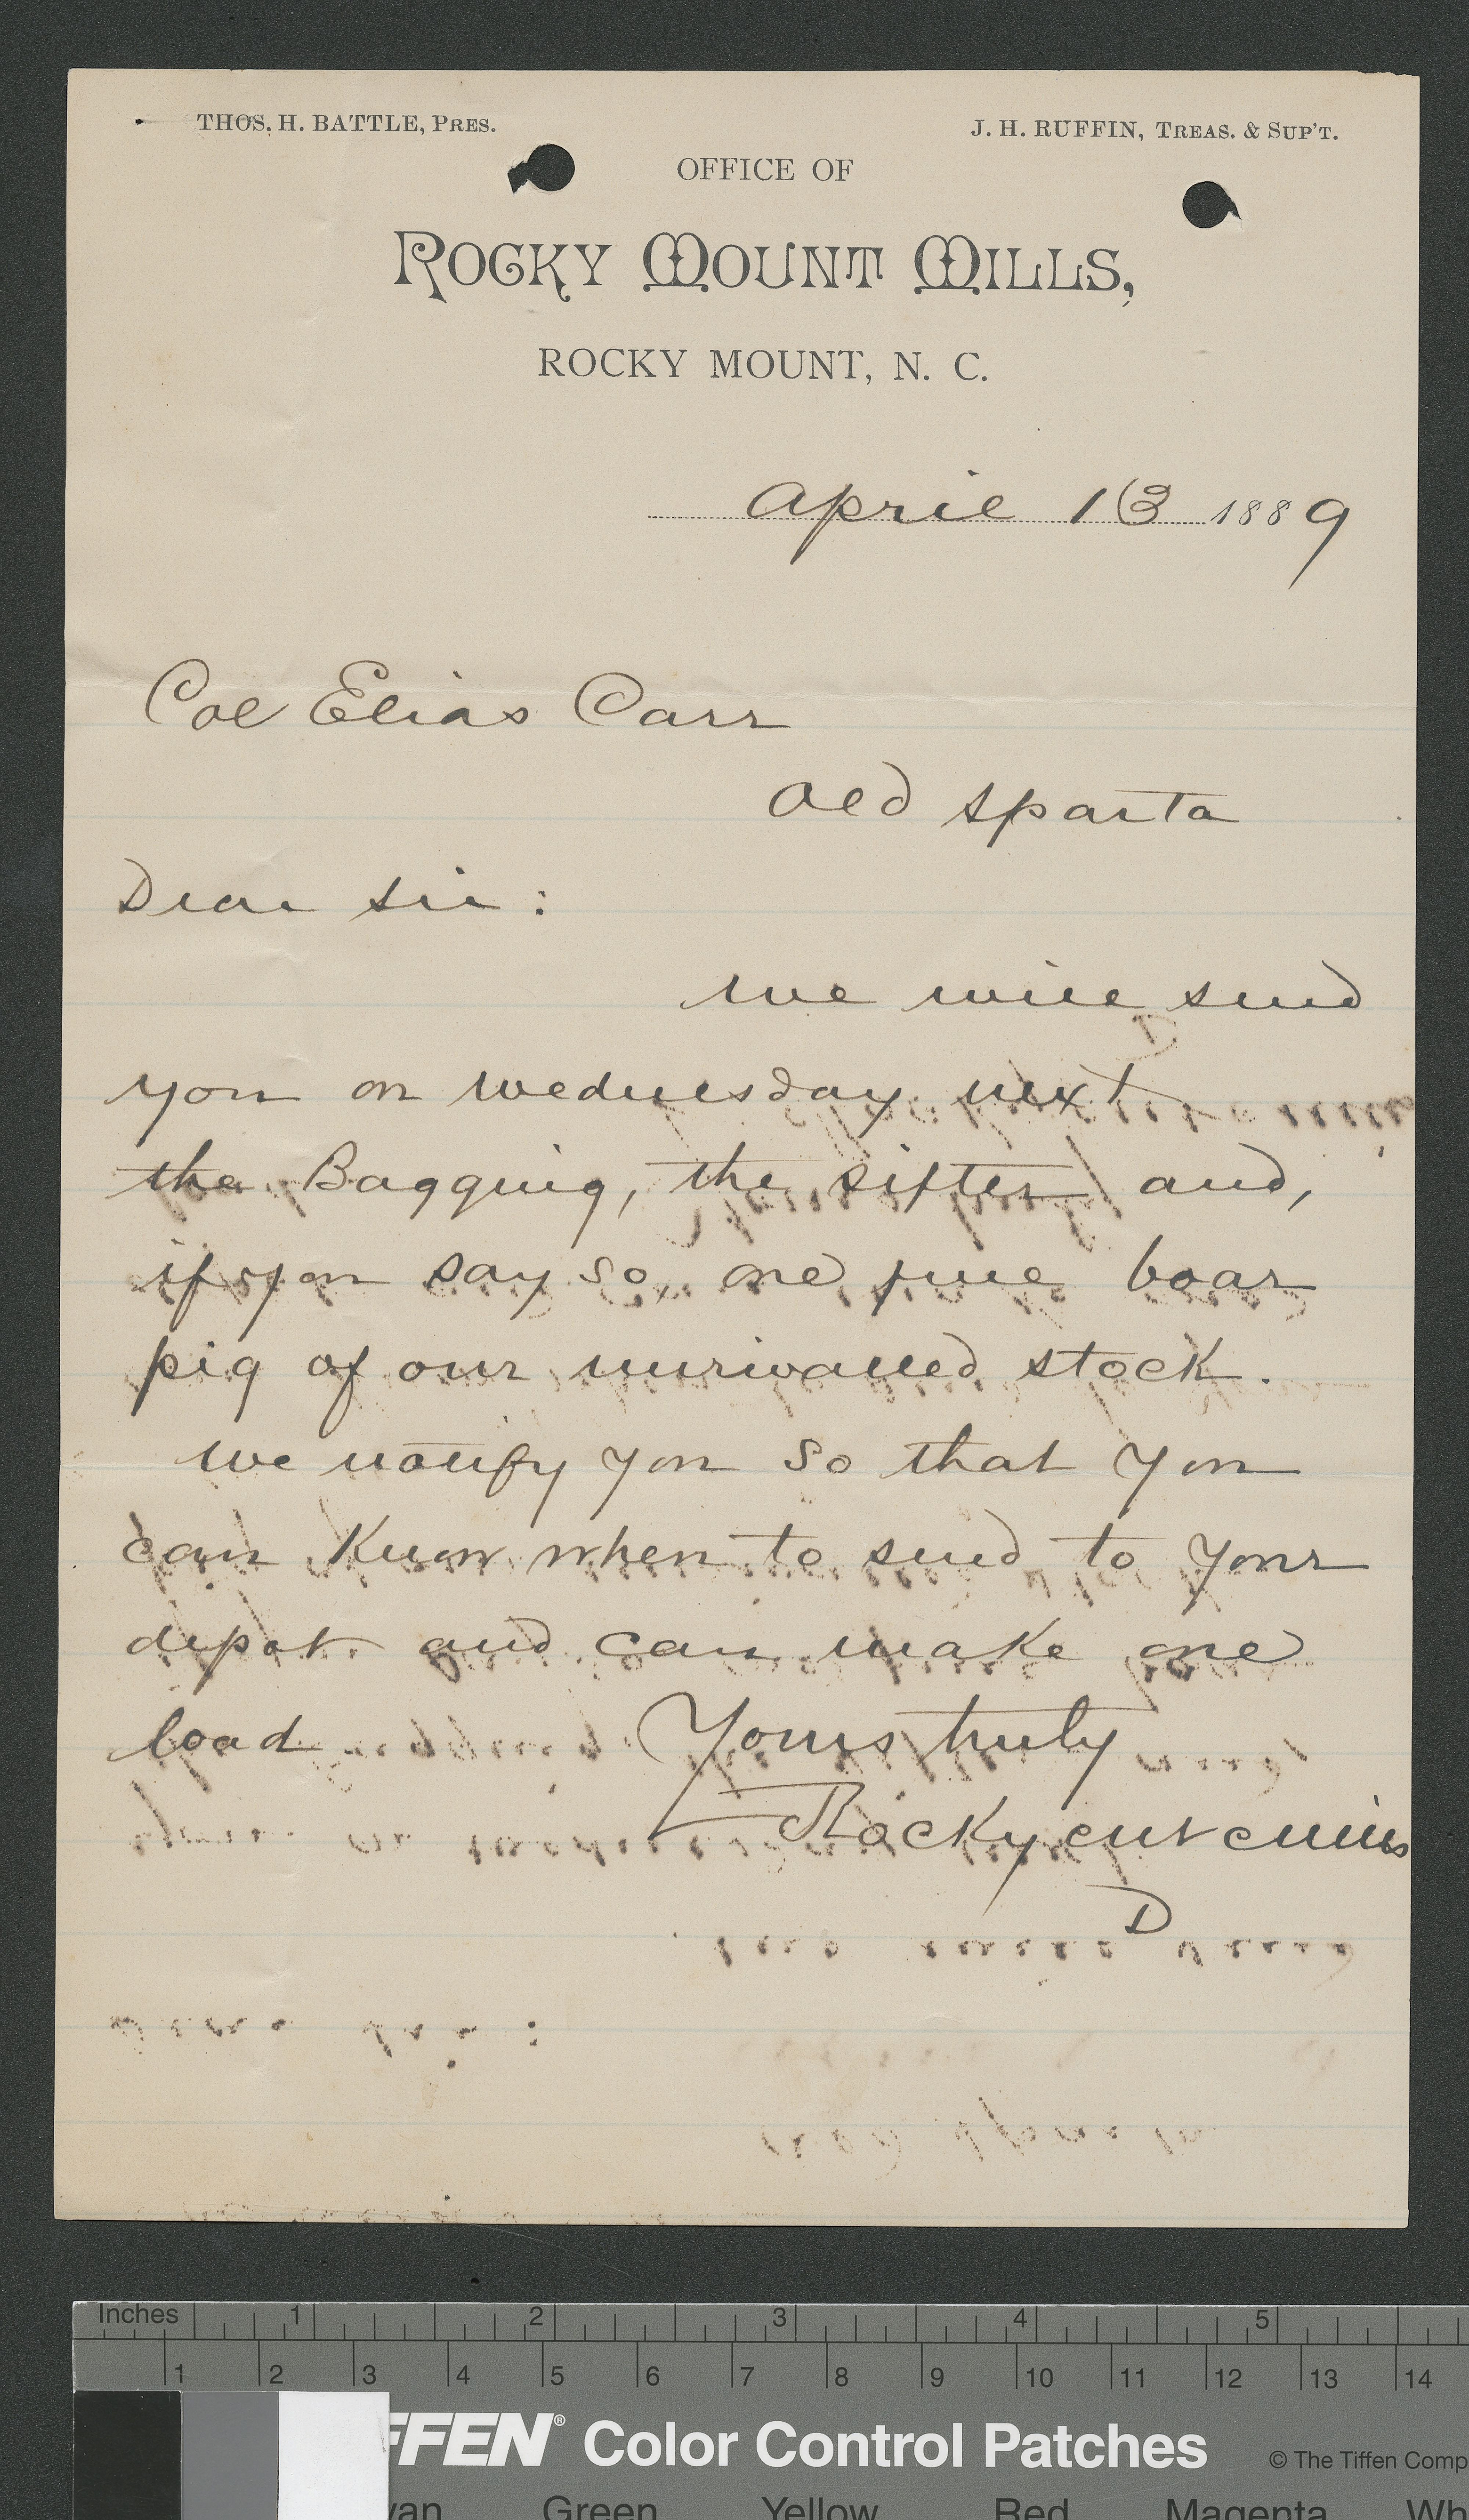 THOS. H. BATTLE, PRES.
J. H. RUFFIN, TREAS. & SUP'T.
OFFICE OF
ROCKY MOUNT MILLS,
ROCKY MOUNT, N. C.
April 13 1889
Col Elias Carr
Old Sparta
Dear Sir:
We will send
you on Wednesday next
the Bagging, the sifter and,
if you say so, one fine boar
pig of our unrivalled stock.
We notify you so that you
can know when to send to your
depot and can make one
load Yours truly
Rocky Mt Mills
D
Inches 1 2 3 4 5
1 2 3 4 5 6 7 8 9 10 11 12 13 14
FFEN® Color Control Patches © The Tiffen Comp
yan Green Yellow Red Magenta Wh